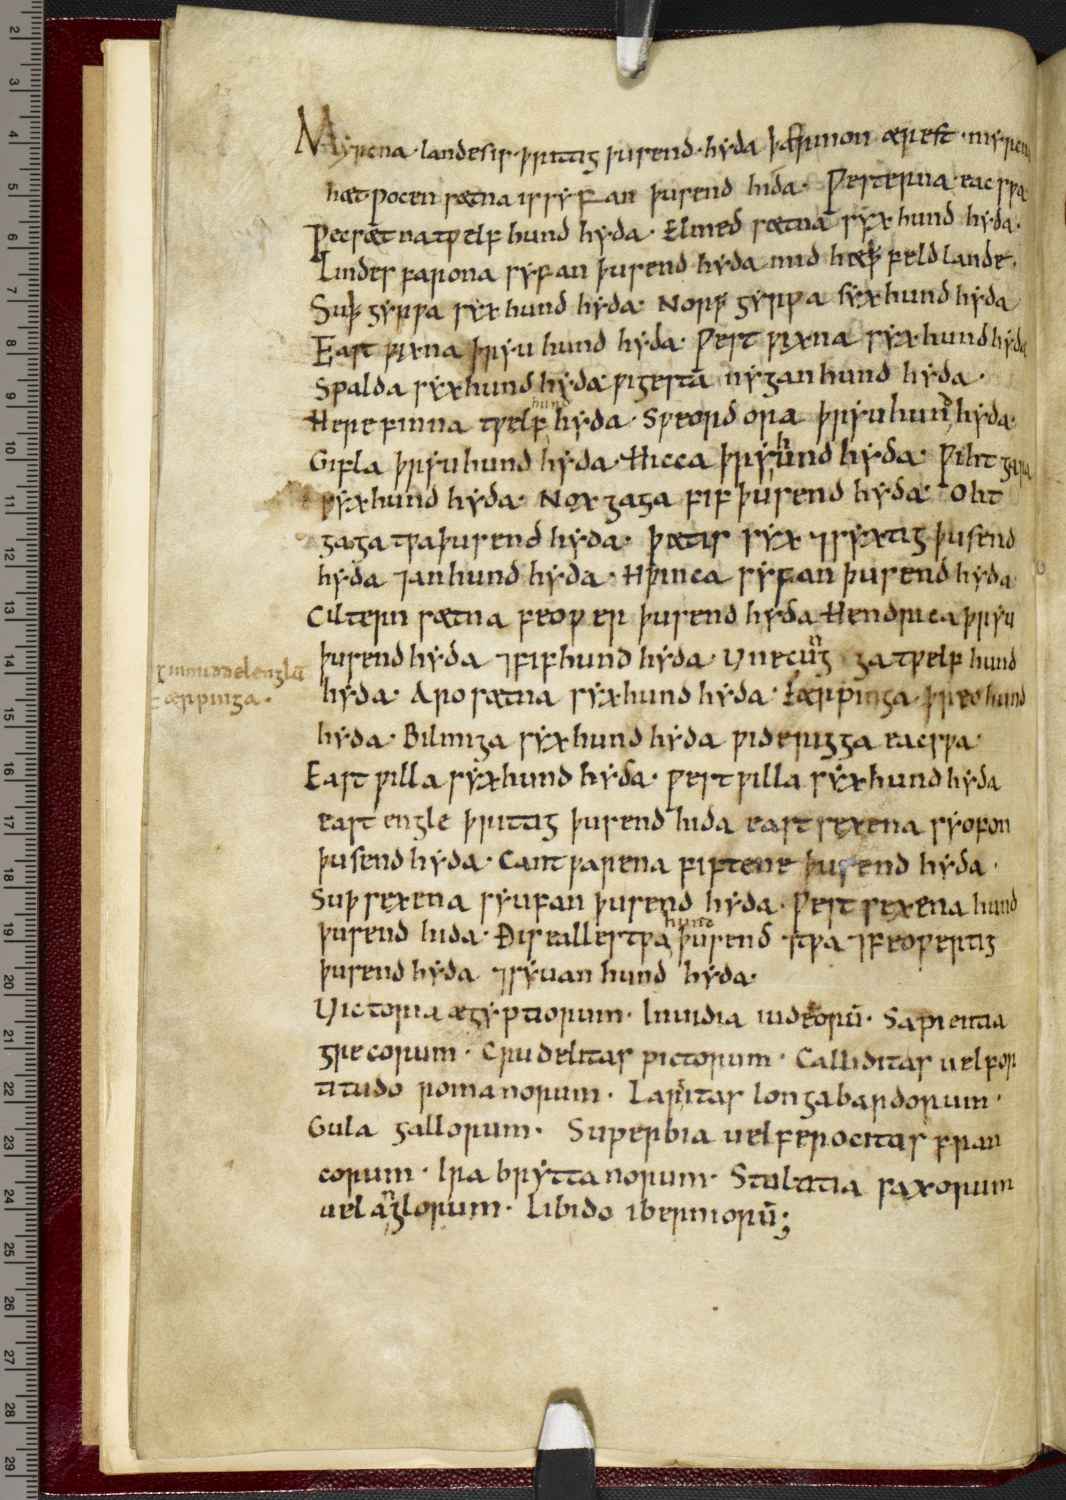 Myrcna · landes is · þrittig þusend · hyda þær mon ærest · myrcna
hæt · ƿocen sætna is syfan þusend hida · Ƿesterna · eac sƿa
Ƿecsæt na tƿelf hund hyda · Elmed sætna syx hund hyda ·
Lindes farona syfan þusend hyda mid hæþ feld lande ·
Suþ gyrƿa syx hund hyda · Norþ gyrƿa syx hund hyda
East ƿixna þryu hund hyda · Ƿest ƿixna syx hund hyda
Spalda syx hund hyda ƿigesta nygan hund hyda ·
Herefinna tƿelf hund hyda · Sƿeord ora þryu hund hyda ·
Gifla þryu hund hyda · Hicca þry hund hyda · Ƿiht gara
syx hund hyda · Nox gaga fif þusend hyda · Oht
gaga tƿa þusend hyda · þæt is syx ⁊ syxtig þusend
hyda ⁊ an hund hyda · Hƿinca syfan þusend hyda
Ciltern sætna feoƿer þusend hyda Hendrica þryu
þusend hyda ⁊ fif hund hyda · Unecung ga tƿelf hund
hyda · Aro sætna syx hund hyda · Færpinga · þreo hund
is in middelenglū
Færpinga ·
hyda · Bilmiga syx hund hyda ƿiderigga eac sƿa ·
East ƿilla syx hund hyda · Ƿest ƿilla syx hund hyda
east engle þrittig þusend hida east sexena syofon
þusend hyda · Cantƿarena fiftene þusend hyda ·
Suþ sexena syufan þusend hyda · Ƿest sexena hund
þusend hida · Ðis ealles tƿa hund þusend ⁊ tƿa ⁊ feoƿertig
þusend hyda ⁊ syuan hund hyda ·
Uictoria ægyptiorum · Inuidia iudeorū · Sapientia
grecorum · Crudelitas pictorum · Calliditas uel for
titudo romanorum · Largitas longabardorum ·
Gula gallorum · Superbia uel ferocitas fran
corum · Ira bryttanorum · Stultitia saxorum
uel anglorum · Libido iberniorū ;